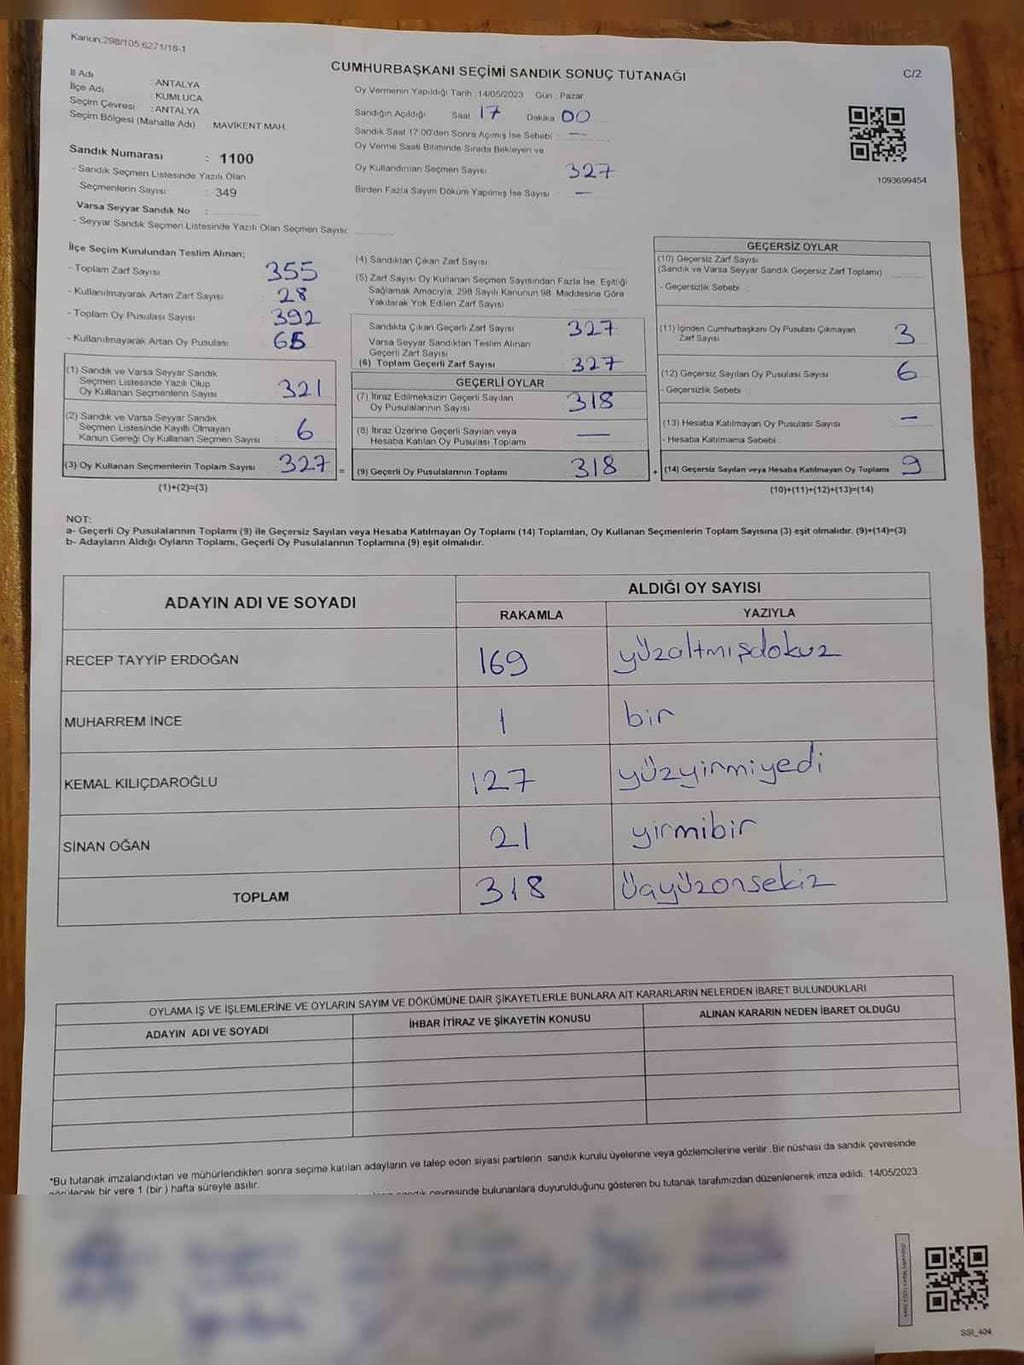 Kanun:298/105,6271/18-1
CUMHURBAŞKANI SEÇİMİ SANDIK SONUÇ TUTANAĞI
C/2
İl Adı : ANTALYA
İlçe Adı : KUMLUCA
Seçim Çevresi : ANTALYA
Seçim Bölgesi (Mahalle Adı) MAVİKENT MAH.
Sandık Numarası : 1100
- Sandık Seçmen Listesinde Yazılı Olan
Seçmenlerin Sayısı : 349
Varsa Seyyar Sandık No :
- Seyyar Sandık Seçmen Listesinde Yazılı Olan Seçmen Sayısı:
Oy Vermenin Yapıldığı Tarih :14/05/2023 Gün : Pazar
Sandığın Açıldığı Saat 17 Dakika 00
Sandık Saat 17:00'den Sonra Açılmış İse Sebebi : —
Oy Verme Saati Bitiminde Sırada Bekleyen ve
Oy Kullandırılan Seçmen Sayısı 327
Birden Fazla Sayım Döküm Yapılmış İse Sayısı —
1093699454
İlçe Seçim Kurulundan Teslim Alınan;
- Toplam Zarf Sayısı 355
- Kullanılmayarak Artan Zarf Sayısı 28
- Toplam Oy Pusulası Sayısı 392
- Kullanılmayarak Artan Oy Pusulası 65
(1) Sandık ve Varsa Seyyar Sandık
Seçmen Listesinde Yazılı Olup
Oy Kullanan Seçmenlerin Sayısı 321
(2) Sandık ve Varsa Seyyar Sandık
Seçmen Listesinde Kayıtlı Olmayan
Kanun Gereği Oy Kullanan Seçmen Sayısı 6
(3) Oy Kullanan Seçmenlerin Toplam Sayısı 327 =
(1)+(2)=(3)
(4) Sandıktan Çıkan Zarf Sayısı
(5) Zarf Sayısı Oy Kullanan Seçmen Sayısından Fazla İse, Eşitliği
Sağlamak Amacıyla, 298 Sayılı Kanunun 98. Maddesine Göre
Yakılarak Yok Edilen Zarf Sayısı
Sandıkta Çıkan Geçerli Zarf Sayısı 327
Varsa Seyyar Sandıktan Teslim Alınan
Geçerli Zarf Sayısı
(6) Toplam Geçerli Zarf Sayısı 327
GEÇERLİ OYLAR
(7) İtiraz Edilmeksizin Geçerli Sayılan
Oy Pusulalarının Sayısı 318
(8) İtiraz Üzerine Geçerli Sayılan veya
Hesaba Katılan Oy Pusulası Toplamı —
(9) Geçerli Oy Pusulalarının Toplamı 318 +
GEÇERSİZ OYLAR
(10) Geçersiz Zarf Sayısı
(Sandık ve Varsa Seyyar Sandık Geçersiz Zarf Toplamı)
- Geçersizlik Sebebi :
(11) İçinden Cumhurbaşkanı Oy Pusulası Çıkmayan
Zarf Sayısı 3
(12) Geçersiz Sayılan Oy Pusulası Sayısı 6
- Geçersizlik Sebebi :
(13) Hesaba Katılmayan Oy Pusulası Sayısı —
- Hesaba Katılmama Sebebi :
(14) Geçersiz Sayılan veya Hesaba Katılmayan Oy Toplamı 9
(10)+(11)+(12)+(13)=(14)
NOT:
a- Geçerli Oy Pusulalarının Toplamı (9) ile Geçersiz Sayılan veya Hesaba Katılmayan Oy Toplamı (14) Toplamları, Oy Kullanan Seçmenlerin Toplam Sayısına (3) eşit olmalıdır. (9)+(14)=(3)
b- Adayların Aldığı Oyların Toplamı, Geçerli Oy Pusulalarının Toplamına (9) eşit olmalıdır.
ADAYIN ADI VE SOYADI ALDIĞI OY SAYISI
RAKAMLA YAZIYLA
RECEP TAYYİP ERDOĞAN 169 yüzaltmışdokuz
MUHARREM İNCE 1 bir
KEMAL KILIÇDAROĞLU 127 yüzyirmiyedi
SİNAN OĞAN 21 yirmibir
TOPLAM 318 üçyüzonsekiz
OYLAMA İŞ VE İŞLEMLERİNE VE OYLARIN SAYIM VE DÖKÜMÜNE DAİR ŞİKAYETLERLE BUNLARA AİT KARARLARIN NELERDEN İBARET BULUNDUKLARI
ADAYIN ADI VE SOYADI İHBAR İTİRAZ VE ŞİKAYETİN KONUSU ALINAN KARARIN NEDEN İBARET OLDUĞU
*Bu tutanak imzalandıktan ve mühürlendikten sonra seçime katılan adayların ve talep eden siyasi partilerin sandık kurulu üyelerine veya gözlemcilerine verilir. Bir nüshası da sandık çevresinde
görülecek bir yere 1 (bir ) hafta süreyle asılır.
sandık çevresinde bulunanlara duyurulduğunu gösteren bu tutanak tarafımızdan düzenlenerek imza edildi. 14/05/2023
SSI_404